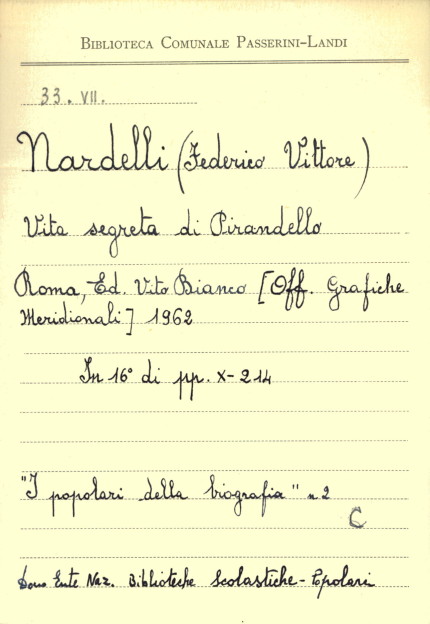 BIBLIOTECA COMUNALE PASSERINI-LANDI
33. VII.
Nardelli (Federico Vittore)
Vita segreta di Pirandello
Roma, Ed. Vito Bianco [Off. Grafiche
Meridionali] 1962
In 16° di pp. X-214
"I popolari della biografia" n. 2
C
Dono Ente Naz. Biblioteche Scolastiche-Popolari